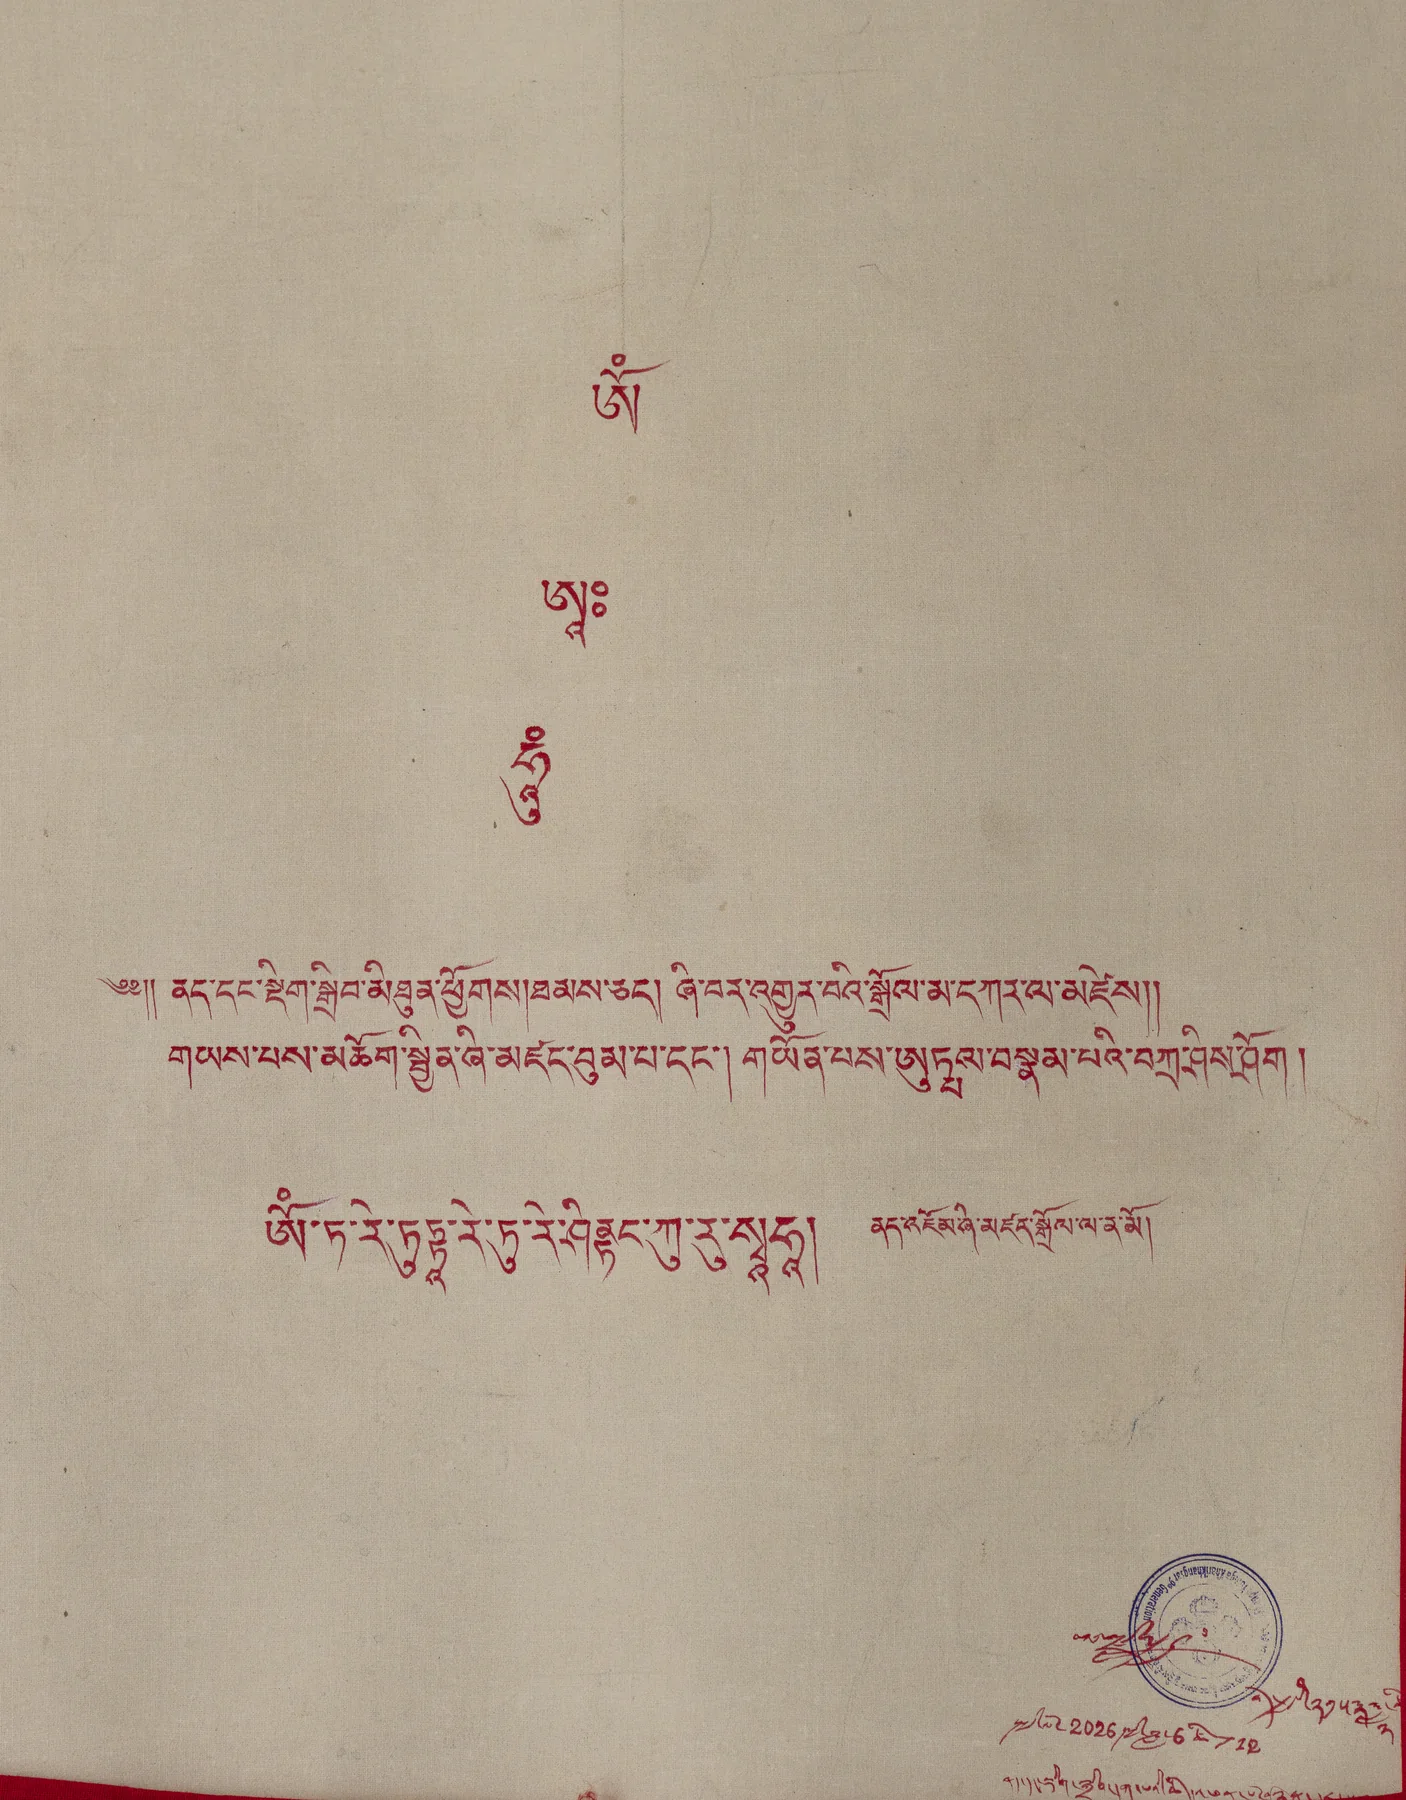 ཨོཾ
ཨཱཿ
ཧཱུྃ
༄༅།། ནད་དང་སྡིག་སྒྲིབ་མི་མཐུན་ཕྱོགས།ཐམས་ཅད། ཞི་བར་འགྱུར་བའི་སྒྲོལ་མ་དཀར་ལ་མཛེས།།
གཡས་པས་མཆོག་སྦྱིན་ཞི་མཛད་བུམ་པ་དང་། གཡོན་པས་ཨུཏྤལ་བསྣམ་པའི་བཀྲ་ཤིས་ཤོག །
ཨོཾ་ཏ་རེ་ཏུཏྟཱ་རེ་ཏུ་རེ་ཤནྟིང་ཀུ་རུ་སྭཱཧཱ། ནད་འཇོམ་ཞི་མཛད་སྒྲོལ་ལ་ན་མོ།
9th Generation
2026 6 12